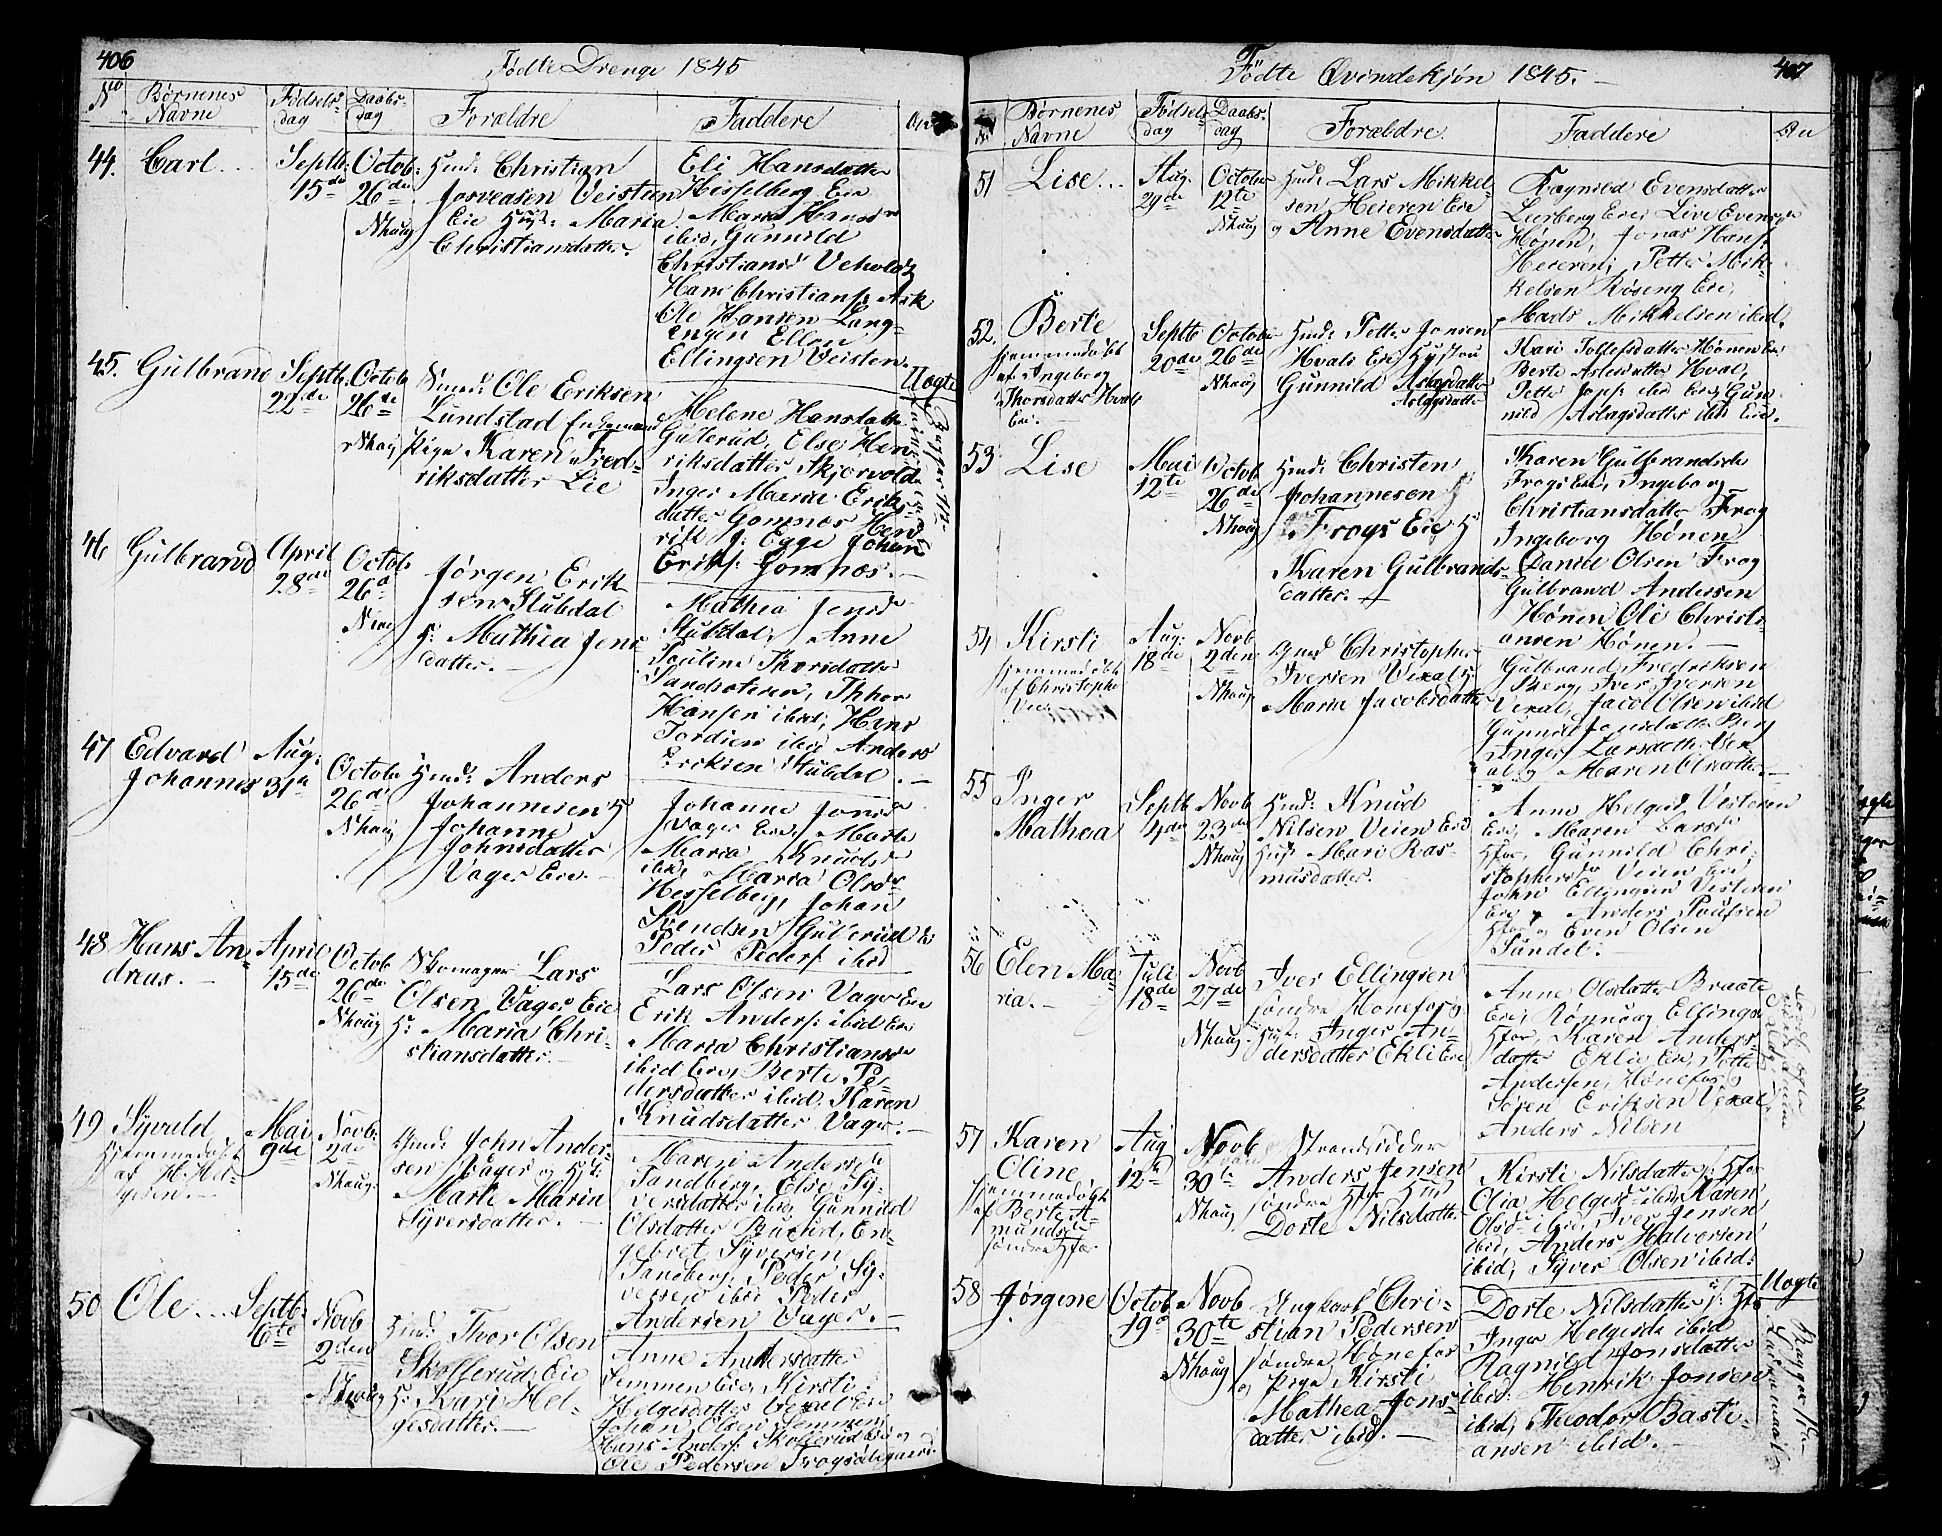 406
Fødte Drenge 1845
No
Børnenes Navne
Fødsels-dag
Daabs-dag
Forældre
Faddere
44.
Carl
Septb: 15de
Octob: 26de
Nhaug
Christian
Eie Maria
Christiansdatter.
Eli Hansdatter
Hesselberg Eie
Maria Hansdr
ibid, Gunnild
Christiansd
Hans Christians: Ask
Ole Hansen Lang-
engen Ellen
Ellingsen Veisten.
45.
Gulbrand
Septb. 22de
Octob 26de
Nhaug
Ole Eriksen
Lundstad
Pige Karen Fred-
riksdatter Lie
Helene Hansdatter
Guterud, Else Hen
riksdatter Skjorvold
Inger Maria Eriks
datter Gomnæs Hen
rik J: Egge Johan
Eriks: Gomnæs.
Uægte
46
Gulbrand
April 28de
Octob 26d
Jørgen Erik
sen Stubdal
H: Mathea Jens
datter.
Mathea Jensd
Stubdal, Anne
Pauline Thorsdatter
Hansen ibid, Hans
Tordsen ibid Anders
Eriksen Stubdal.
47
Edvard
Johannes
Aug: 31te
Octobr 26de
Nhaug
Huusd: Anders
Johannesen H
Johanne
Johnsdatter
Vager Eie
Johanne Jonsd
Vager Eie, Marte
Maria Knudsdr
ibid, Maria Olsdr
Hesselberg, Johan
Svendsen Gulerud Ei
Peder Peders: ibid
48
Hans An-
dreas.
April 15de
Octob 26de
Nhaug
Skomager Lars
Olsen Vager Eie
H: Maria Chri-
stiansdatter
Lars Olsen Vager Eie
Erik Anders: ibid Eie
Maria Christiansdr
ibid Eie, Berte Pe-
dersdatter ibid, Karen
Knudsdatter Vager.
49
Syvuld
hjemmedøbt
af H. Hel-
gesen.
Mai 9de
Novb: 2de
Nhaug
Huusd: John Ander-
sen Vager og H:
Marte Maria
Syversdatter.
Maren Andersdr
Sandberg, Else Sy-
versdatter ibid, Gunnild
Olsdatter Bu, En-
gebret Syversen
Sandberg, Peder Sy-
versen ibid Peder
Andersen Vager.
50
Ole
Septb. 6te
Novb 2den
Nhaug
Huusd: Thor Olsen
Skollerud Eie
H: Kari Hel-
gesdatter.
Anne Andersdatter
Semmen Eie, Kirsti
Helgesdatter Vexal Eie
Johan Olsen Semmen
Hans Anders: Skollerud Eie og
Ole Pedersen Frogsdlegaard
407
Fødte Qvindekjøn 1845.
Børnenes Navne
Fødsels-dag
Daabs-dag
Forældre
Faddere
51
Lise
Aug: 29de
October 12te
Nhaug
Huusd: Lars Mikkel
sen Heieren Eie
og Anne Evensdatter
Ragnild Evensdatter
Leerberg Eie, Live Evensdr
Hønen, Jonas Hans:
Heieren, Petter Mik-
kelsen Røseng Eie,
Mads Mikkelsen ibid.
52.
Berte
hjemmedøbt
af Ingeborg
Thorsdatter Hvals
Eie.
Septb 20de
October 26de
Nhaug
Huusd: Petter Jonsen
Hvals Eie Hustru
Gunnild Aslagsdatter
Aslagsdatter
Kari Tollefsdatter Hønen Eie
Berte Aslesdatter Hval,
Petter Jons: ibid Eie, Gun
nild Aslagsdatter ibid Eie.
53
Lise
Mai 12te
Octob 26de
Nhaug
Huusd: Christen
Johannesen
Frogs Eie H
Karen Gulbrands-
datter.
Karen Gulbrandsdr
Frogs Eie, Ingeborg
Christiansdatter Frog
Ingeborg Hønen
Daniel Olsen Frog
Gulbrand Andersen
Hønen Ole Christi-
ansen Hønen.
54
Kirsti
hjemmedøbt
af Christopher
Aug: 18de
Novb 2den
Nhaug
Christopher
Iversen Vexal H:
Maria Jacobsdatter
Gulbrand Fredriksen
Berg, Iver Iversen
Vexal, Jacob Olsen ibid
Gunnild Jonsdatter Berg
Inger Larsdatter Vex
al, Maren Olsdatter.
55
Inger
Mathea
Septb 4de
Novb 23de
Nhaug
Huusd: Knud
Nilsen Veien Eie
Hust: Mari Ras-
musdatter.
Anne Helgesd, Vesteren
Eie, Maren Larsdr
Hfos, Gunnild Chri-
stophersdr Veien Eie
John Ellingsen Vesteren
Eie, Anders Paulsen
Hfos og Even Olsen
Sundet.
56
Elen Ma-
ria.
Juli 18de
Novb 27de
Nhaug
Iver Ellingsen
søndre Hønefos
Hust: Inger An-
dersdatter Ekli Eie
Anne Olsdatter Braate
Eie, Rønnaug Ellingsdr
Hfos, Karen Anders-
datter Eklie Eie, Petter
Andersen, Hønefos
Søren Eriksen Vexal
Anders Nilsen
57
Karen
Oline
hjemmedøbt
af Berte A-
mundsd
søndre Hfos
Aug 12te
Novb 30te
Nhaug
Strandsidder
Anders Jensen
søndre Hfos Hust
Dorte Nilsdatter
Kirsti Nilsdatter s: Hfos
Olia Helgesd ibid, Karen
Olsd ibid, Iver Jensen
ibid, Anders Halvorsen
ibid, Syver Olsen ibid:
58
Jørgene
Octob 19de
Novb 30te
Nhaug
Ungkarl Chri-
stian Pedersen
søndre Hønefos
og Pige Kirsti
Mathea Jons-
datter ibid.
Dorte Nilsdatter s: Hfos
Inger Helgesdr ibid
Ragnild Jonsdatter
ibid. Henrik Jonsen
ibid, Theodor Basti-
ansen ibid.
Uægte